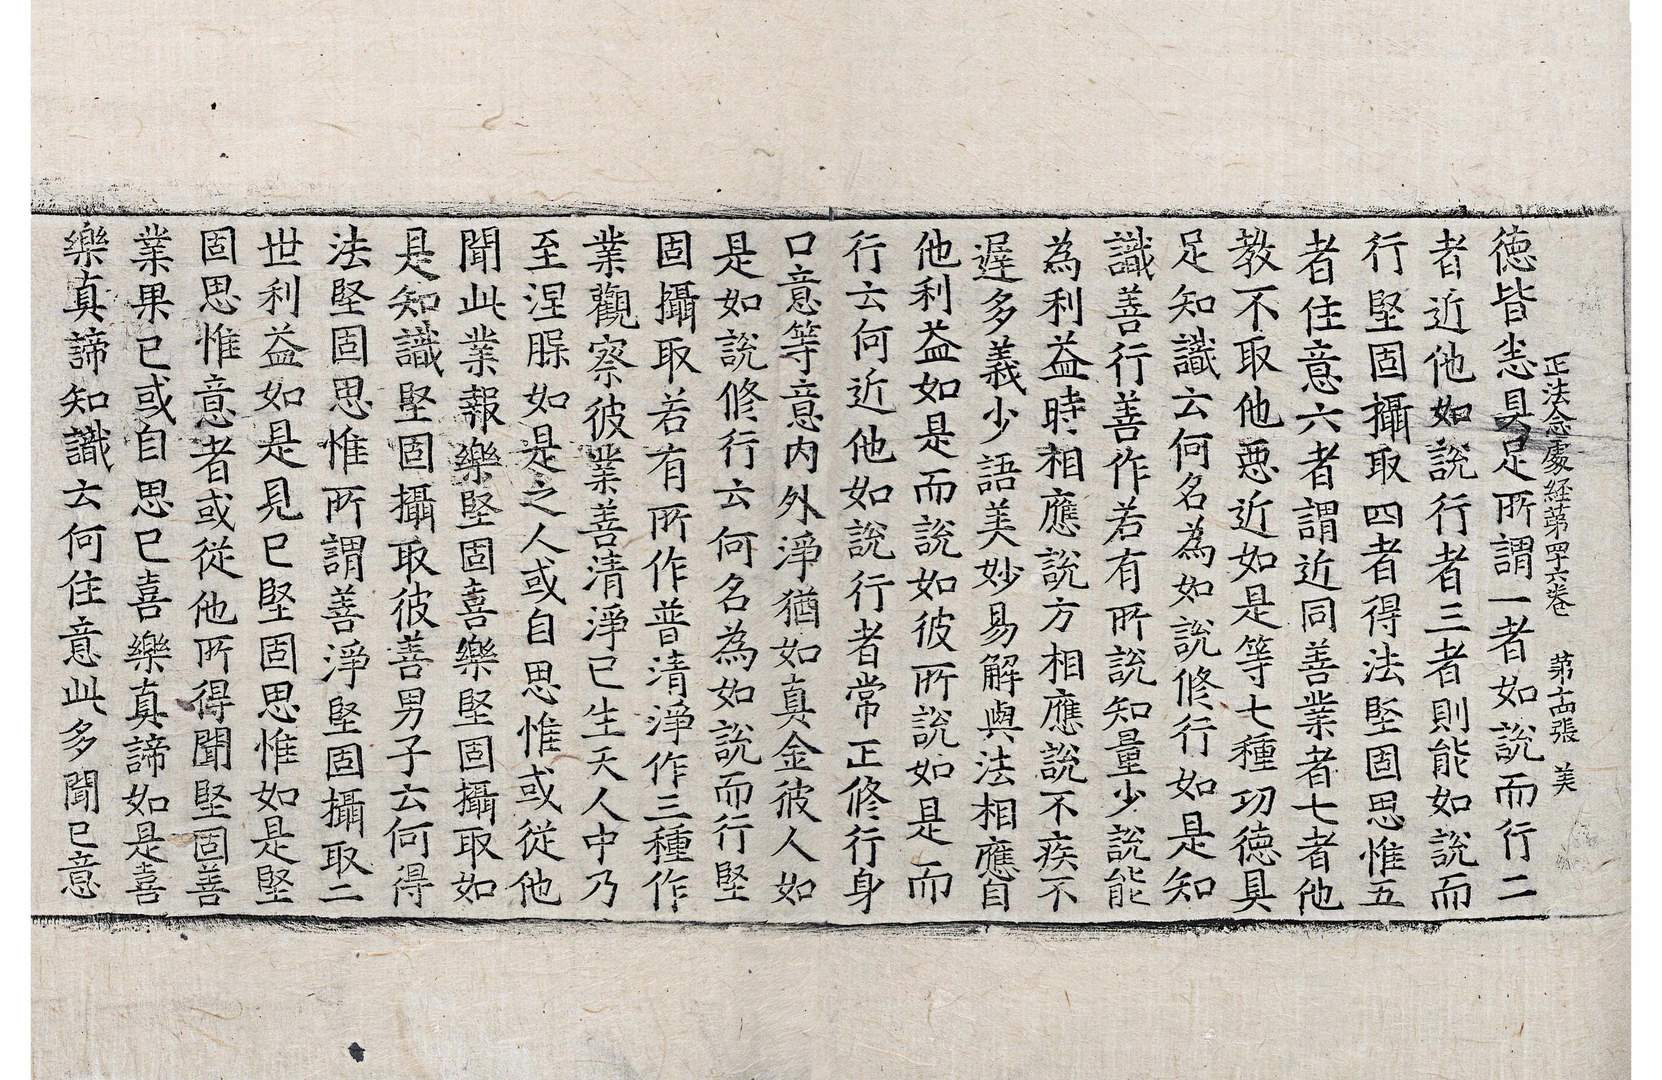 正法念處経第四十六卷　第十四張　美
德皆悉具足所謂一者如說而行二
者近他如說行者三者則能如說而
行堅固攝取四者得法堅固思惟五
者住意六者謂近同善業者七者他
教不取他惡近如是等七種功德具
足知識云何名為如說修行如是知
識善行善作若有所說知量少說能
為利益時相應說方相應說不疾不
遲多義少語美妙易解與法相應自
他利益如是而說如彼所說如是而
行云何近他如說行者常正修行身
口意等意內外淨猶如真金彼人如
是如說修行云何名為如說而行堅
固攝取若有所作普清淨作三種作
業觀察彼業善清淨已生天人中乃
至涅槃如是之人或自思惟或從他
聞此業報樂堅固喜樂堅固攝取如
是知識堅固攝取彼善男子云何得
法堅固思惟所謂善淨堅固攝取二
世利益如是見已堅固思惟如是堅
固思惟意者或從他所得聞堅固善
業果已或自思已喜樂真諦如是喜
樂真諦知識云何住意此多聞已意